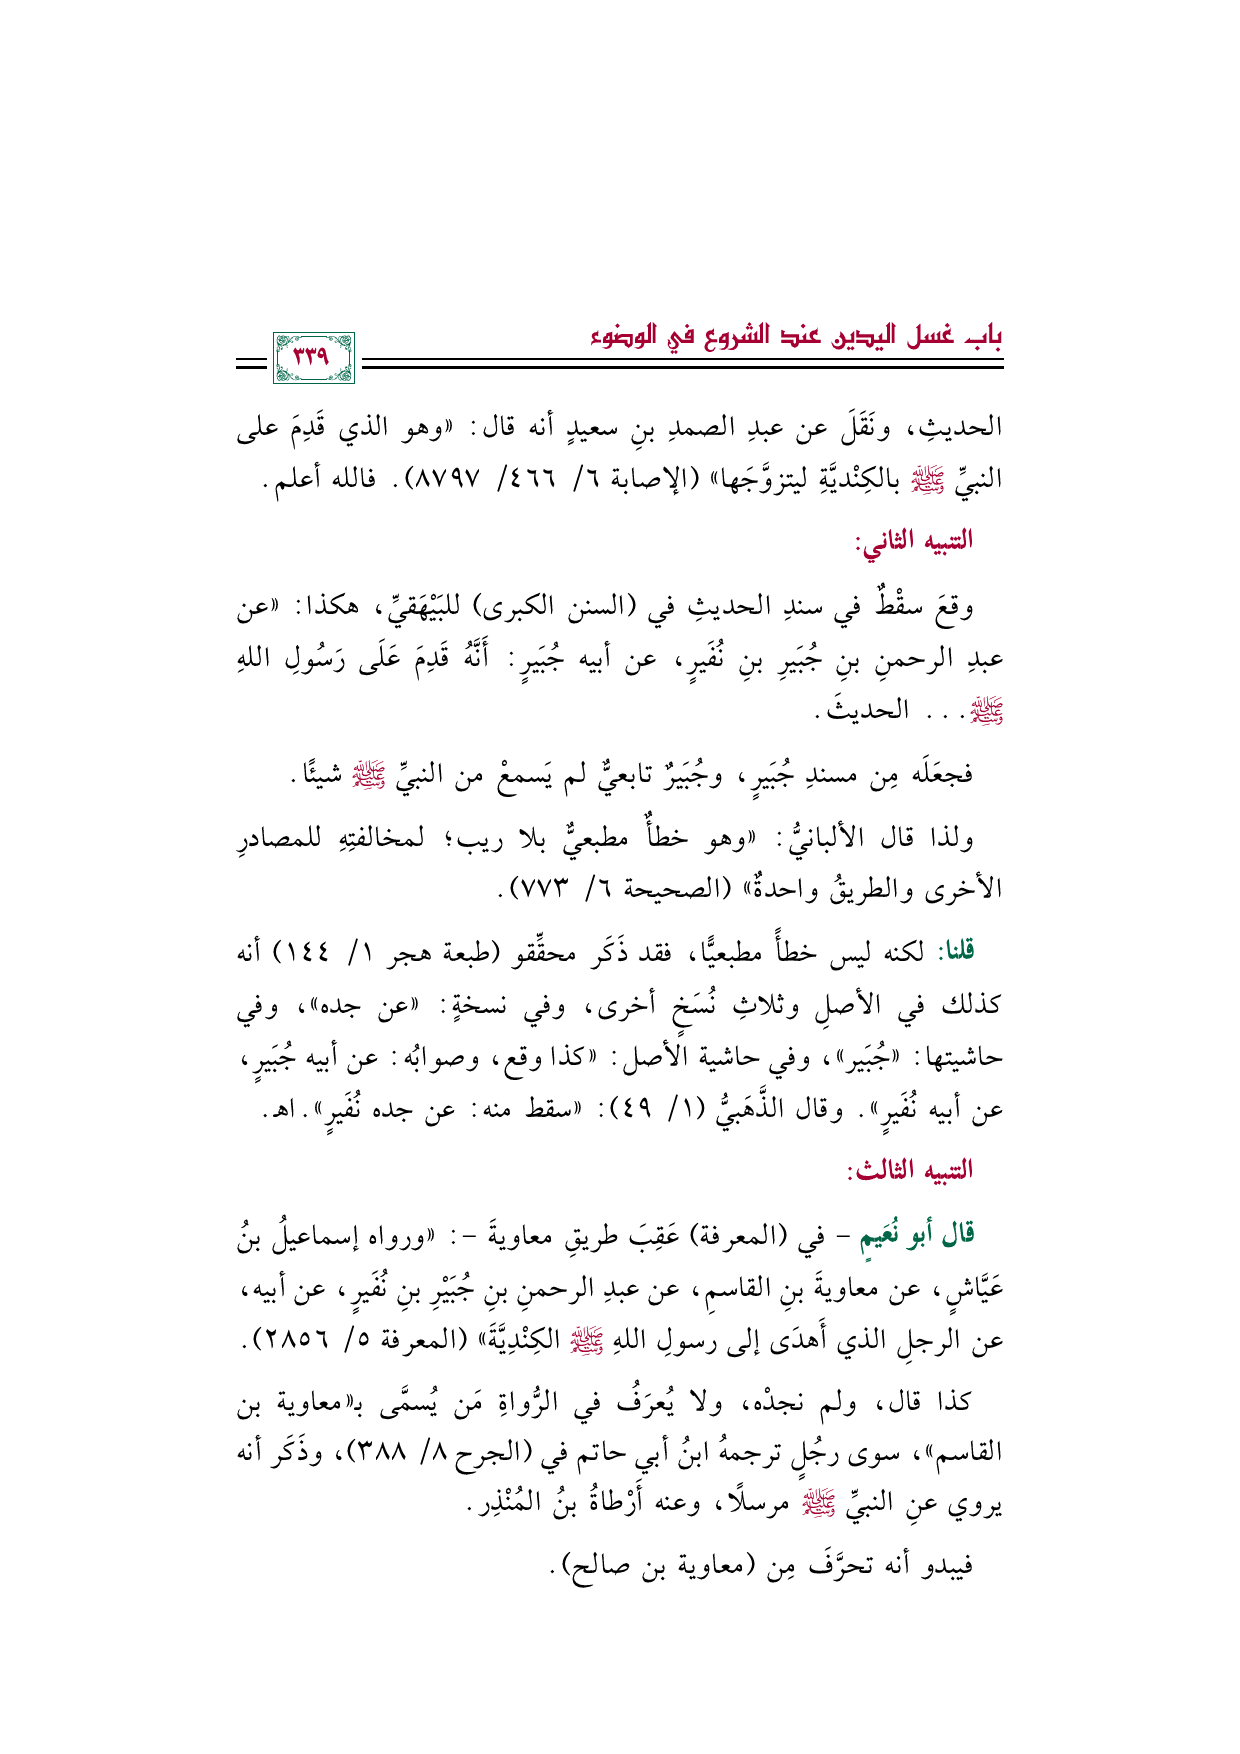 باب غسل اليدين عند الشروع في الوضوء
٣٣٩
الحديثِ، ونَقَلَ عن عبدِ الصمدِ بنِ سعيدٍ أنه قال: «وهو الذي قَدِمَ على
النبيِّ ﷺ بالكِنْديَّةِ ليتزوَّجَها» (الإصابة ٦/ ٤٦٦/ ٨٧٩٧). فالله أعلم.
التنبيه الثاني:
وقعَ سقْطٌ في سندِ الحديثِ في (السنن الكبرى) للبَيْهَقيِّ، هكذا: «عن
عبدِ الرحمنِ بنِ جُبَيرِ بنِ نُفَيرٍ، عن أبيه جُبَيرٍ: أَنَّهُ قَدِمَ عَلَى رَسُولِ اللهِ
ﷺ... الحديثَ.
فجعَلَه مِن مسندِ جُبَيرٍ، وجُبَيرٌ تابعيٌّ لم يَسمعْ من النبيِّ ﷺ شيئًا.
ولذا قال الألبانيُّ: «وهو خطأٌ مطبعيٌّ بلا ريب؛ لمخالفتِهِ للمصادرِ
الأخرى والطريقُ واحدةٌ» (الصحيحة ٦/ ٧٧٣).
قلنا: لكنه ليس خطأً مطبعيًّا، فقد ذَكَر محقِّقو (طبعة هجر ١/ ١٤٤) أنه
كذلك في الأصلِ وثلاثِ نُسَخٍ أخرى، وفي نسخةٍ: «عن جده»، وفي
حاشيتها: «جُبَير»، وفي حاشية الأصل: «كذا وقع، وصوابُه: عن أبيه جُبَيرٍ،
عن أبيه نُفَيرٍ». وقال الذَّهَبيُّ (١/ ٤٩): «سقط منه: عن جده نُفَيرٍ». اهـ.
التنبيه الثالث:
قال أبو نُعَيمٍ - في (المعرفة) عَقِبَ طريقِ معاويةَ -: «ورواه إسماعيلُ بنُ
عَيَّاشٍ، عن معاويةَ بنِ القاسمِ، عن عبدِ الرحمنِ بنِ جُبَيْرِ بنِ نُفَيرٍ، عن أبيه،
عن الرجلِ الذي أَهدَى إلى رسولِ اللهِ ﷺ الكِنْدِيَّةَ» (المعرفة ٥/ ٢٨٥٦).
كذا قال، ولم نجدْه، ولا يُعرَفُ في الرُّواةِ مَن يُسمَّى بـ«معاوية بن
القاسم»، سوى رجُلٍ ترجمهُ ابنُ أبي حاتم في (الجرح ٨/ ٣٨٨)، وذَكَر أنه
يروي عنِ النبيِّ ﷺ مرسلًا، وعنه أَرْطاةُ بنُ المُنْذِر.
فيبدو أنه تحرَّفَ مِن (معاوية بن صالح).